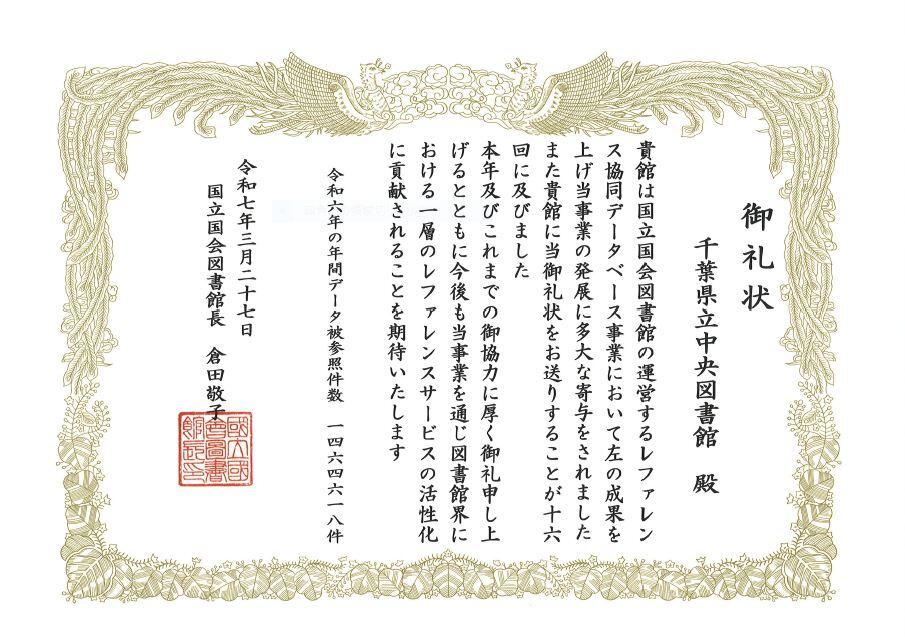 御礼状
千葉県立中央図書館　殿
貴館は国立国会図書館の運営するレファレン
ス協同データベース事業において左の成果を
上げ当事業の発展に多大な寄与をされました
また貴館に当御礼状をお送りすることが十六
回に及びました
本年及びこれまでの御協力に厚く御礼申し上
げるとともに今後も当事業を通じ図書館界に
おける一層のレファレンスサービスの活性化
に貢献されることを期待いたします
令和六年の年間データ被参照件数　一四六四六一八件
令和七年三月二十七日
国立国会図書館長　倉田敬子
國立國
會圖書
館長印